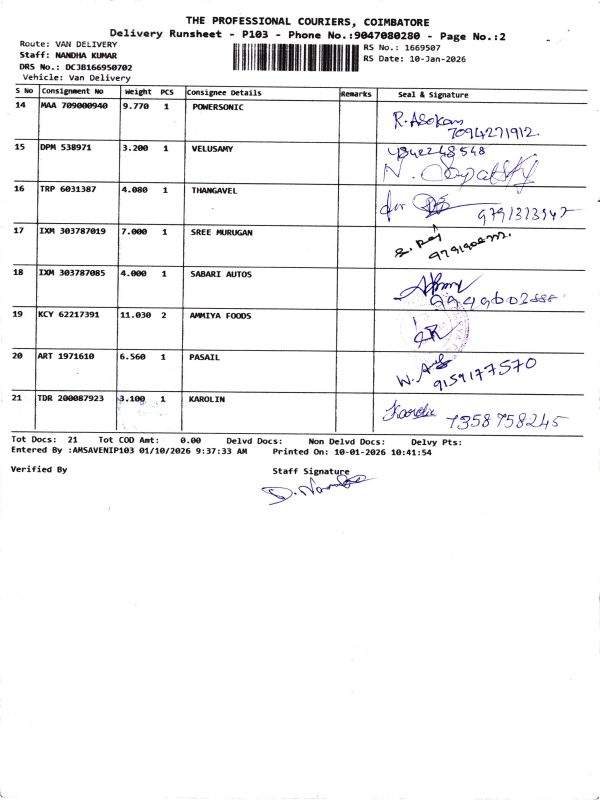 THE PROFESSIONAL COURIERS, COIMBATORE
Delivery Runsheet - P103 - Phone No.:9047080280 - Page No.:2
Route: VAN DELIVERY
RS No.: 1669507
Staff: NANDHA KUMAR
RS Date: 10-Jan-2026
DRS No.: DCJB166950702
Vehicle: Van Delivery
S No Consignment No Weight PCS Consignee Details Remarks Seal & Signature
14 MAA 709000940 9.770 1 POWERSONIC
R. Asokan
7094271912.
15 DPM 538971 3.200 1 VELUSAMY
16 TRP 6031387 4.080 1 THANGAVEL
for
17 IXM 303787019 7.000 1 SREE MURUGAN
18 IXM 303787085 4.000 1 SABARI AUTOS
19 KCY 62217391 11.030 2 AMMIYA FOODS
20 ART 1971610 6.560 1 PASAIL
9159177570
21 TDR 200087923 3.100 1 KAROLIN
7358758245
Tot Docs: 21 Tot COD Amt: 0.00 Delvd Docs: Non Delvd Docs: Delvy Pts:
Entered By :AMSAVENIP103 01/10/2026 9:37:33 AM Printed On: 10-01-2026 10:41:54
Verified By Staff Signature